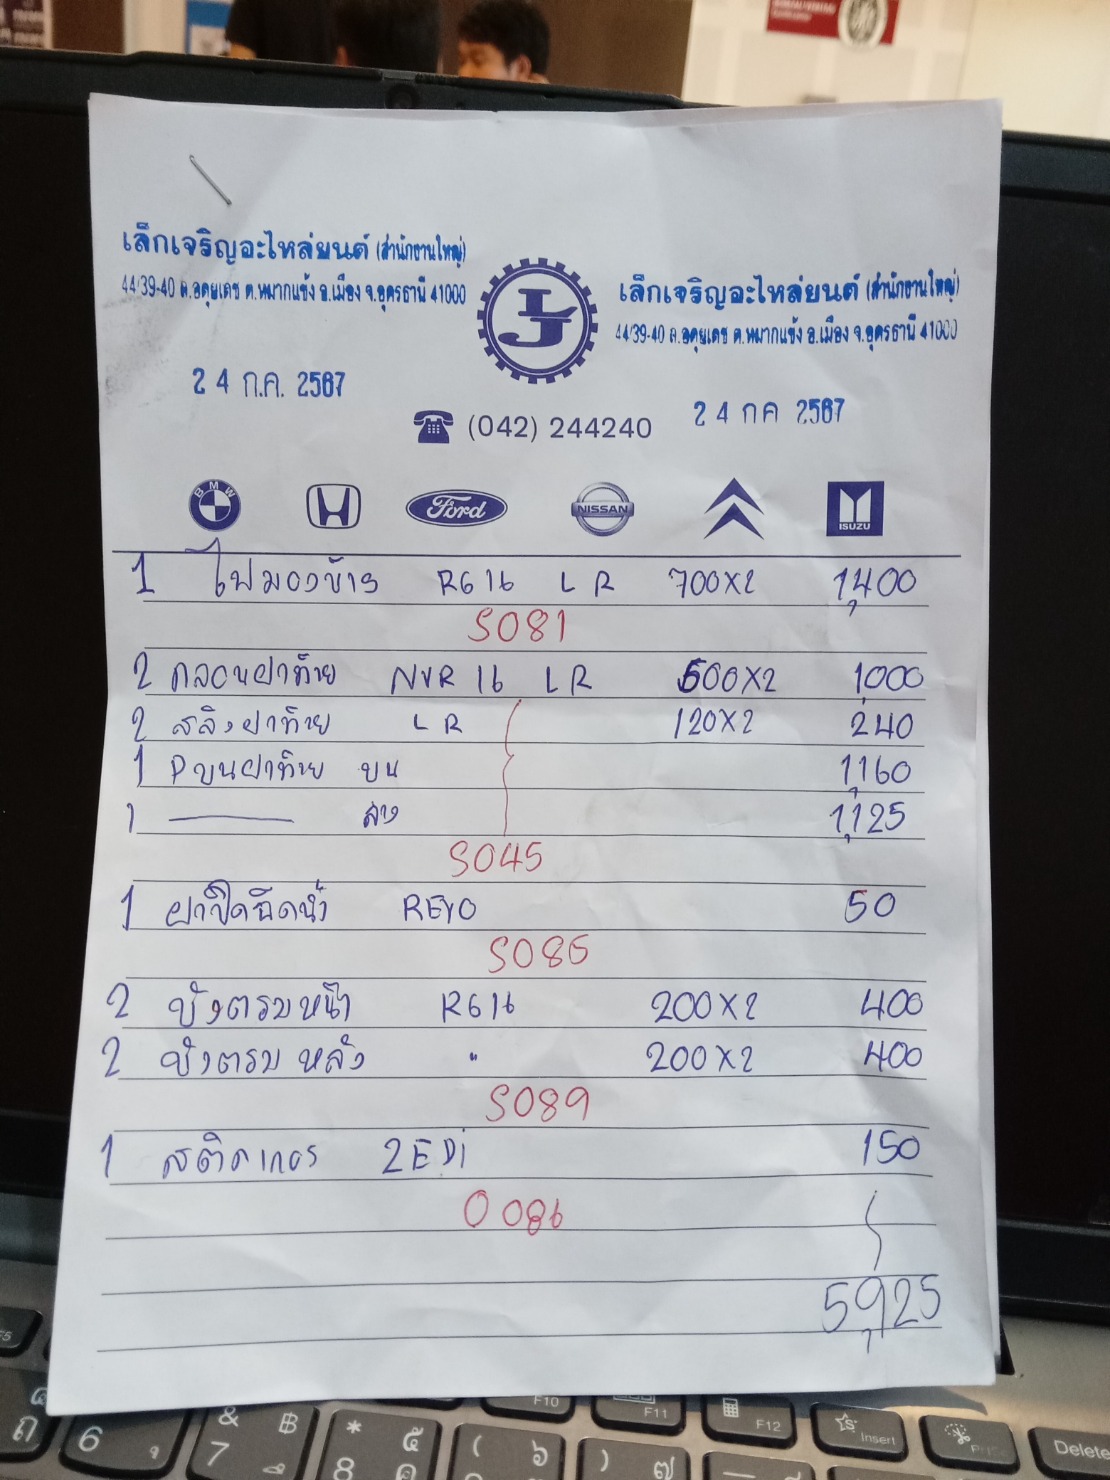 เล็กเจริญอะไหล่ยนต์ (สำนักงานใหญ่)
44/39-40 ถ.อดุยเดช ต.หมากแข้ง อ.เมือง จ.อุดรธานี 41000
24 ก.ค. 2567
LJ
เล็กเจริญอะไหล่ยนต์ (สำนักงานใหญ่)
44/39-40 ถ.อดุยเดช ต.หมากแข้ง อ.เมือง จ.อุดรธานี 41000
24 กค 2567
(042) 244240
BMW
Ford
NISSAN
ISUZU
1 ไฟมองข้าง RG16 L R 700X2 1,400
S081
2 กลอนฝาท้าย NVR 16 L R 500X2 1,000
2 สลิงฝาท้าย L R 120X2 240
1 Pบนฝาท้าย บน 1,160
1 ล่าง 1,125
S045
1 ฝาปิดฉีดน้ำ REVO 50
S085
2 บังตรมหน้า RG16 200X2 400
2 บังตรม หลัง " 200X2 400
S089
1 สติคเกอร 2EDi 150
0086
5,925
F5
6
& 7 ฿
* 8
( ๖
) ๗
F10
F11
F12
Insert
Delete